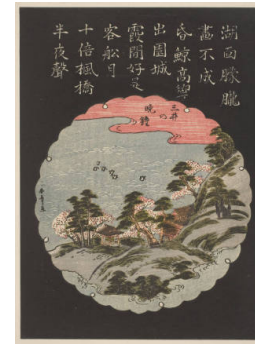 湖西朦朧
畫不成
吞鯨高響
出園城
霞間好是
客船月
十倍楓橋
半夜聲
三井
の
晩鐘